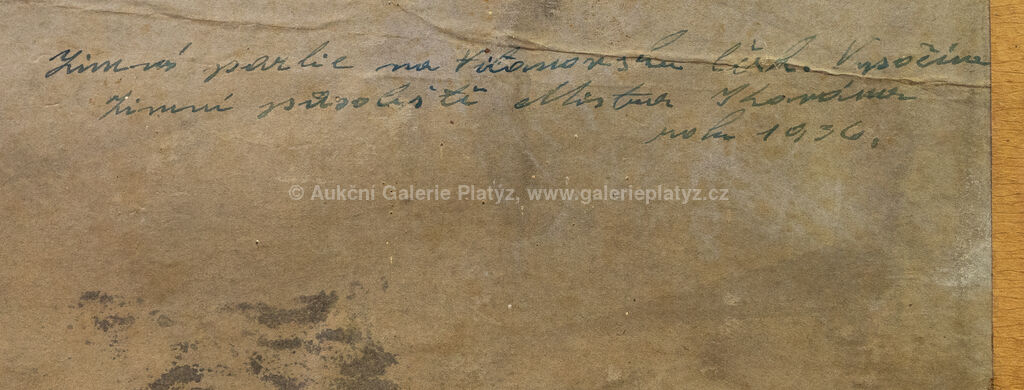 Zimní partie na Vítanovsku čésk. Vysočina
Zimní působiště Mistra Kavána
roku 1936.
© Aukční Galerie Platýz, www.galerieplatyz.cz